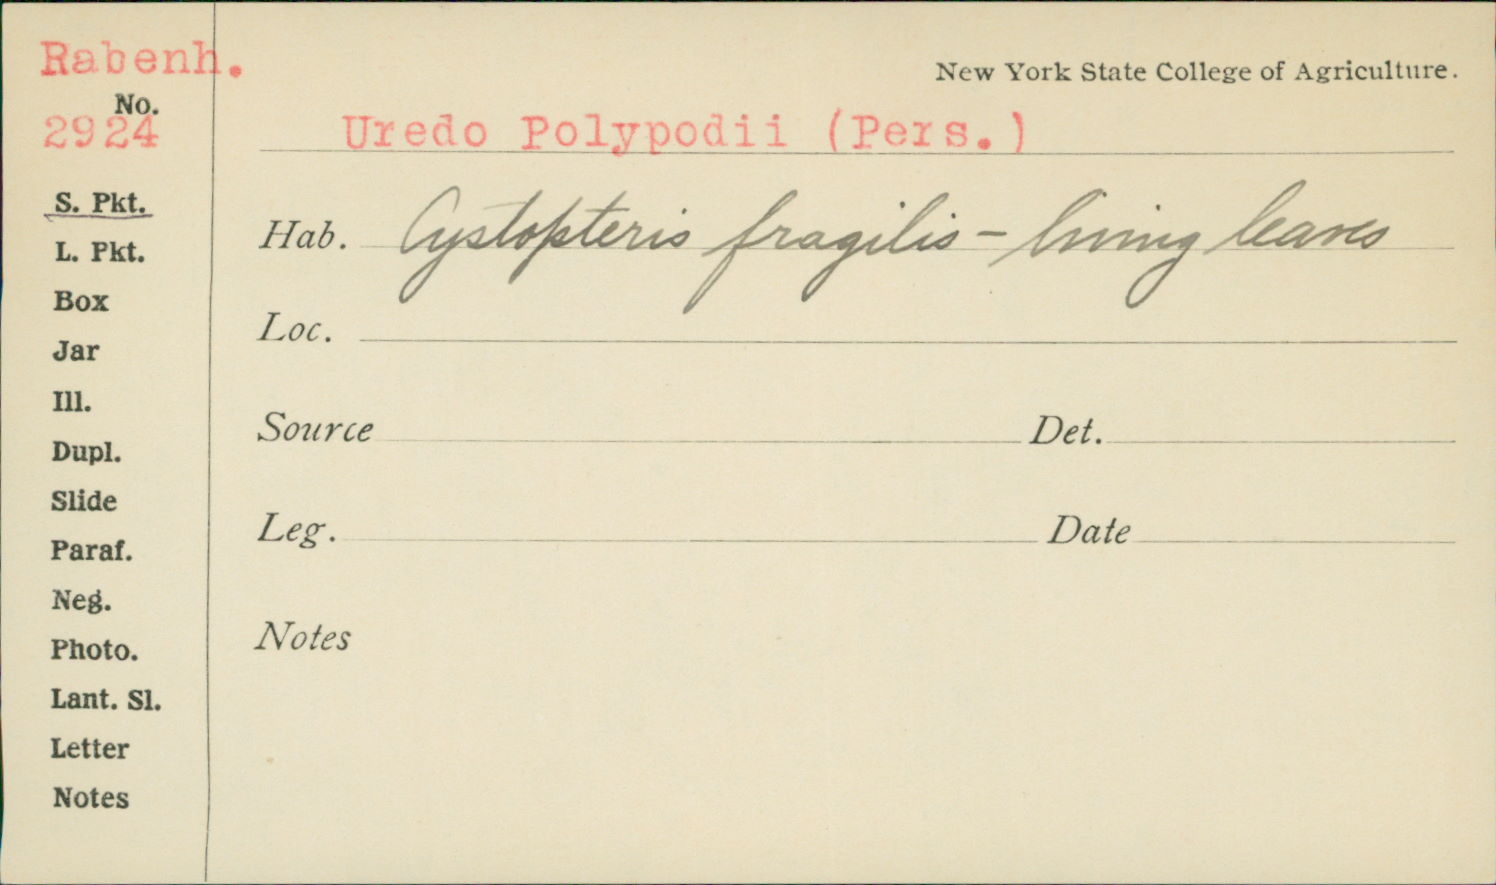 Rabenh.
New York State College of Agriculture.
No.
2924
Uredo Polypodii (Pers.)
S. Pkt.
Hab. Cystopteris fragilis – living leaves
L. Pkt.
Box
Loc.
Jar
Ill.
Source Det.
Dupl.
Slide
Leg. Date
Paraf.
Neg.
Notes
Photo.
Lant. Sl.
Letter
Notes